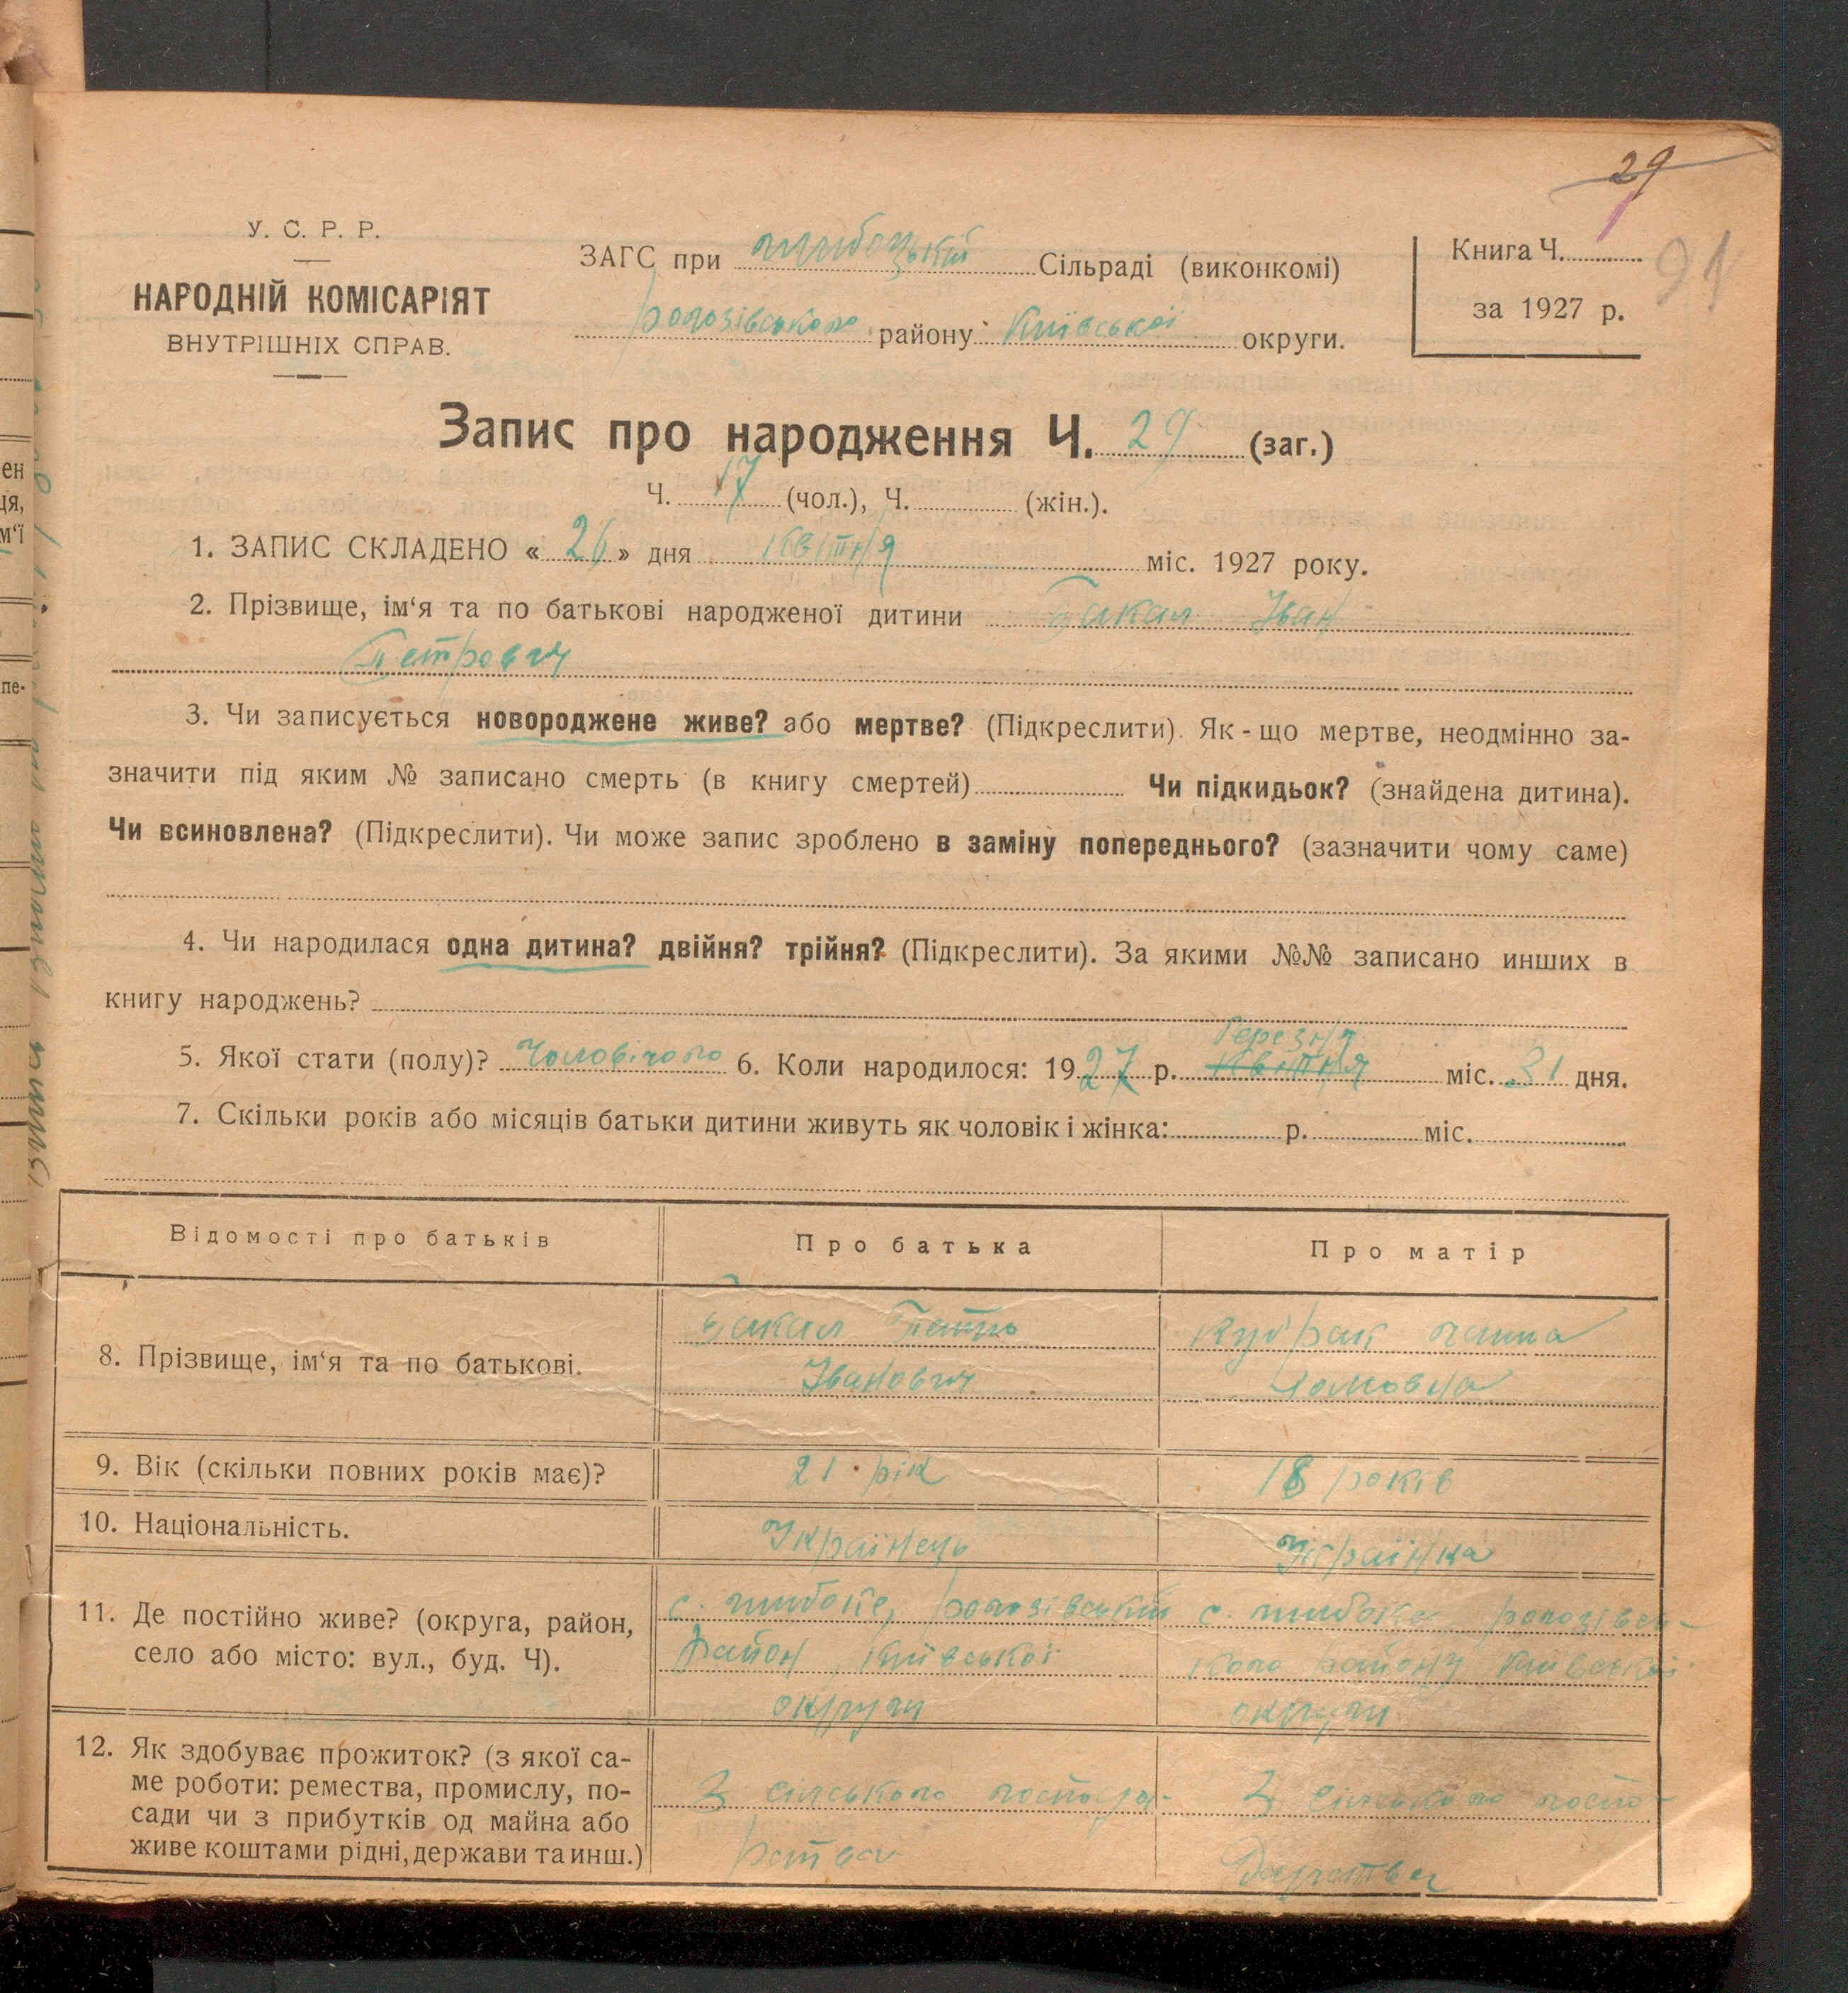 29
91
У. С. Р. Р.
НАРОДНІЙ КОМІСАРІЯТ
ВНУТРІШНІХ СПРАВ.
ЗАГС при глибоцькій Сільраді (виконкомі)
рогозівського району Київської округи.
Книга Ч.
за 1927 р.
Запис про народження Ч. 29 (заг.)
Ч. 17 (чол.), Ч. (жін.).
1. ЗАПИС СКЛАДЕНО « 26 » дня Квітня міс. 1927 року.
2. Прізвище, ім‘я та по батькові народженої дитини Бакал Іван
Петрович
3. Чи записується новороджене живе? або мертве? (Підкреслити). Як-що мертве, неодмінно за-
значити під яким № записано смерть (в книгу смертей) Чи підкидьок? (знайдена дитина).
Чи всиновлена? (Підкреслити). Чи може запис зроблено в заміну попереднього? (зазначити чому саме)
4. Чи народилася одна дитина? двійня? трійня? (Підкреслити). За якими №№ записано инших в
книгу народжень?
Березня
5. Якої стати (полу)? Чоловічого 6. Коли народилося: 1927 р. Квітня міс. 31 дня.
7. Скільки років або місяців батьки дитини живуть як чоловік і жінка: р. міс.
Відомості про батьків Про батька Про матір
8. Прізвище, ім‘я та по батькові.
Бакал Петро
Іванович
Кубрак
9. Вік (скільки повних років має)? 21 рік 18 років
10. Національність. Українець Українка
11. Де постійно живе? (округа, район,
село або місто: вул., буд. Ч).
с. глибоке, рогозівський
район Київської
округи
с. глибоке рогозівсь-
кого району Київської
округи
12. Як здобуває прожиток? (з якої са-
ме роботи: ремества, промислу, по-
сади чи з прибутків од майна або
живе коштами рідні, держави та инш.)
З сільського господа-
рства
З сільського госпо-
дарства
ен
ця,
м‘ї
пе-